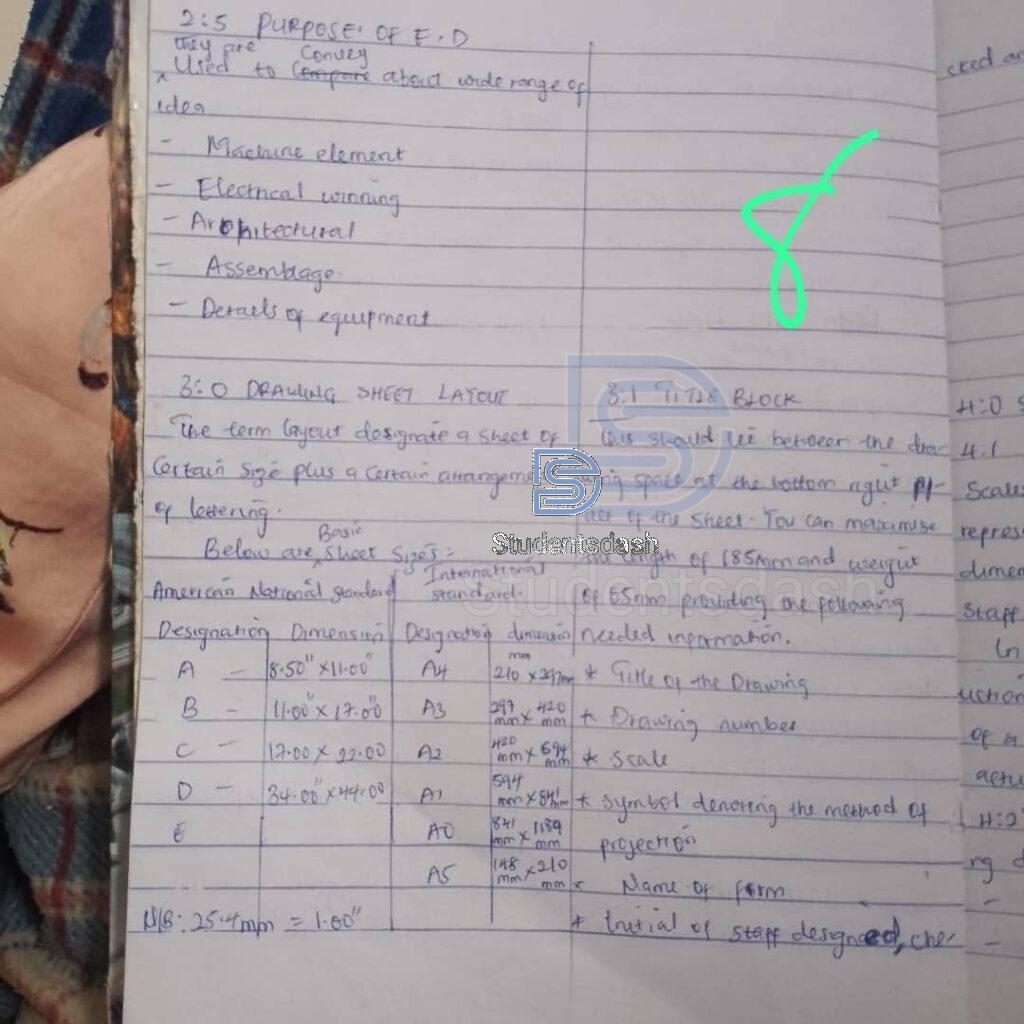 2:5 PURPOSE: OF E.D
they are Convey
Used to Compare about wide range of
idea
- Machine element
- Electrical winning
- Architectural
- Assemblage
- Details of equipment
8
3:0 DRAWING SHEET LAYOUT
The term layout designate a sheet of
Certain Size plus a certain arrangement
of lettering.
Basic
Below are sheet sizes:
American National standard
International standard.
Designation Dimension Designation dimension
A - 8.50" x 11.00" A4 210 x 297mm
mm
B - 11.00" x 17.00 A3 297 mm x 420 mm
C - 17.00 x 22.00 A2 420 mm x 594 mm
D - 34.00" x 44.00 A1 594 mm x 841mm
E A0 841 mm x 1189 mm
A5 148 mm x 210 mm
N/B: 25.4mm = 1.00"
3:1 TITLE BLOCK
this should lie between the dra-
wing space at the bottom right pl-
ace of the sheet. You can maximise
the length of 185mm and weight
of 65mm providing the following
needed information.
* Title of the Drawing
* Drawing number
* scale
* symbol denoting the method of
projection
* Name of firm
* Initial of staff designed, che-
cked
4:0
4:1
Scale
repres
dimen
staff
In
uction
of a
actu
4:2
ng
-
-
Studentsdash
studentsdash